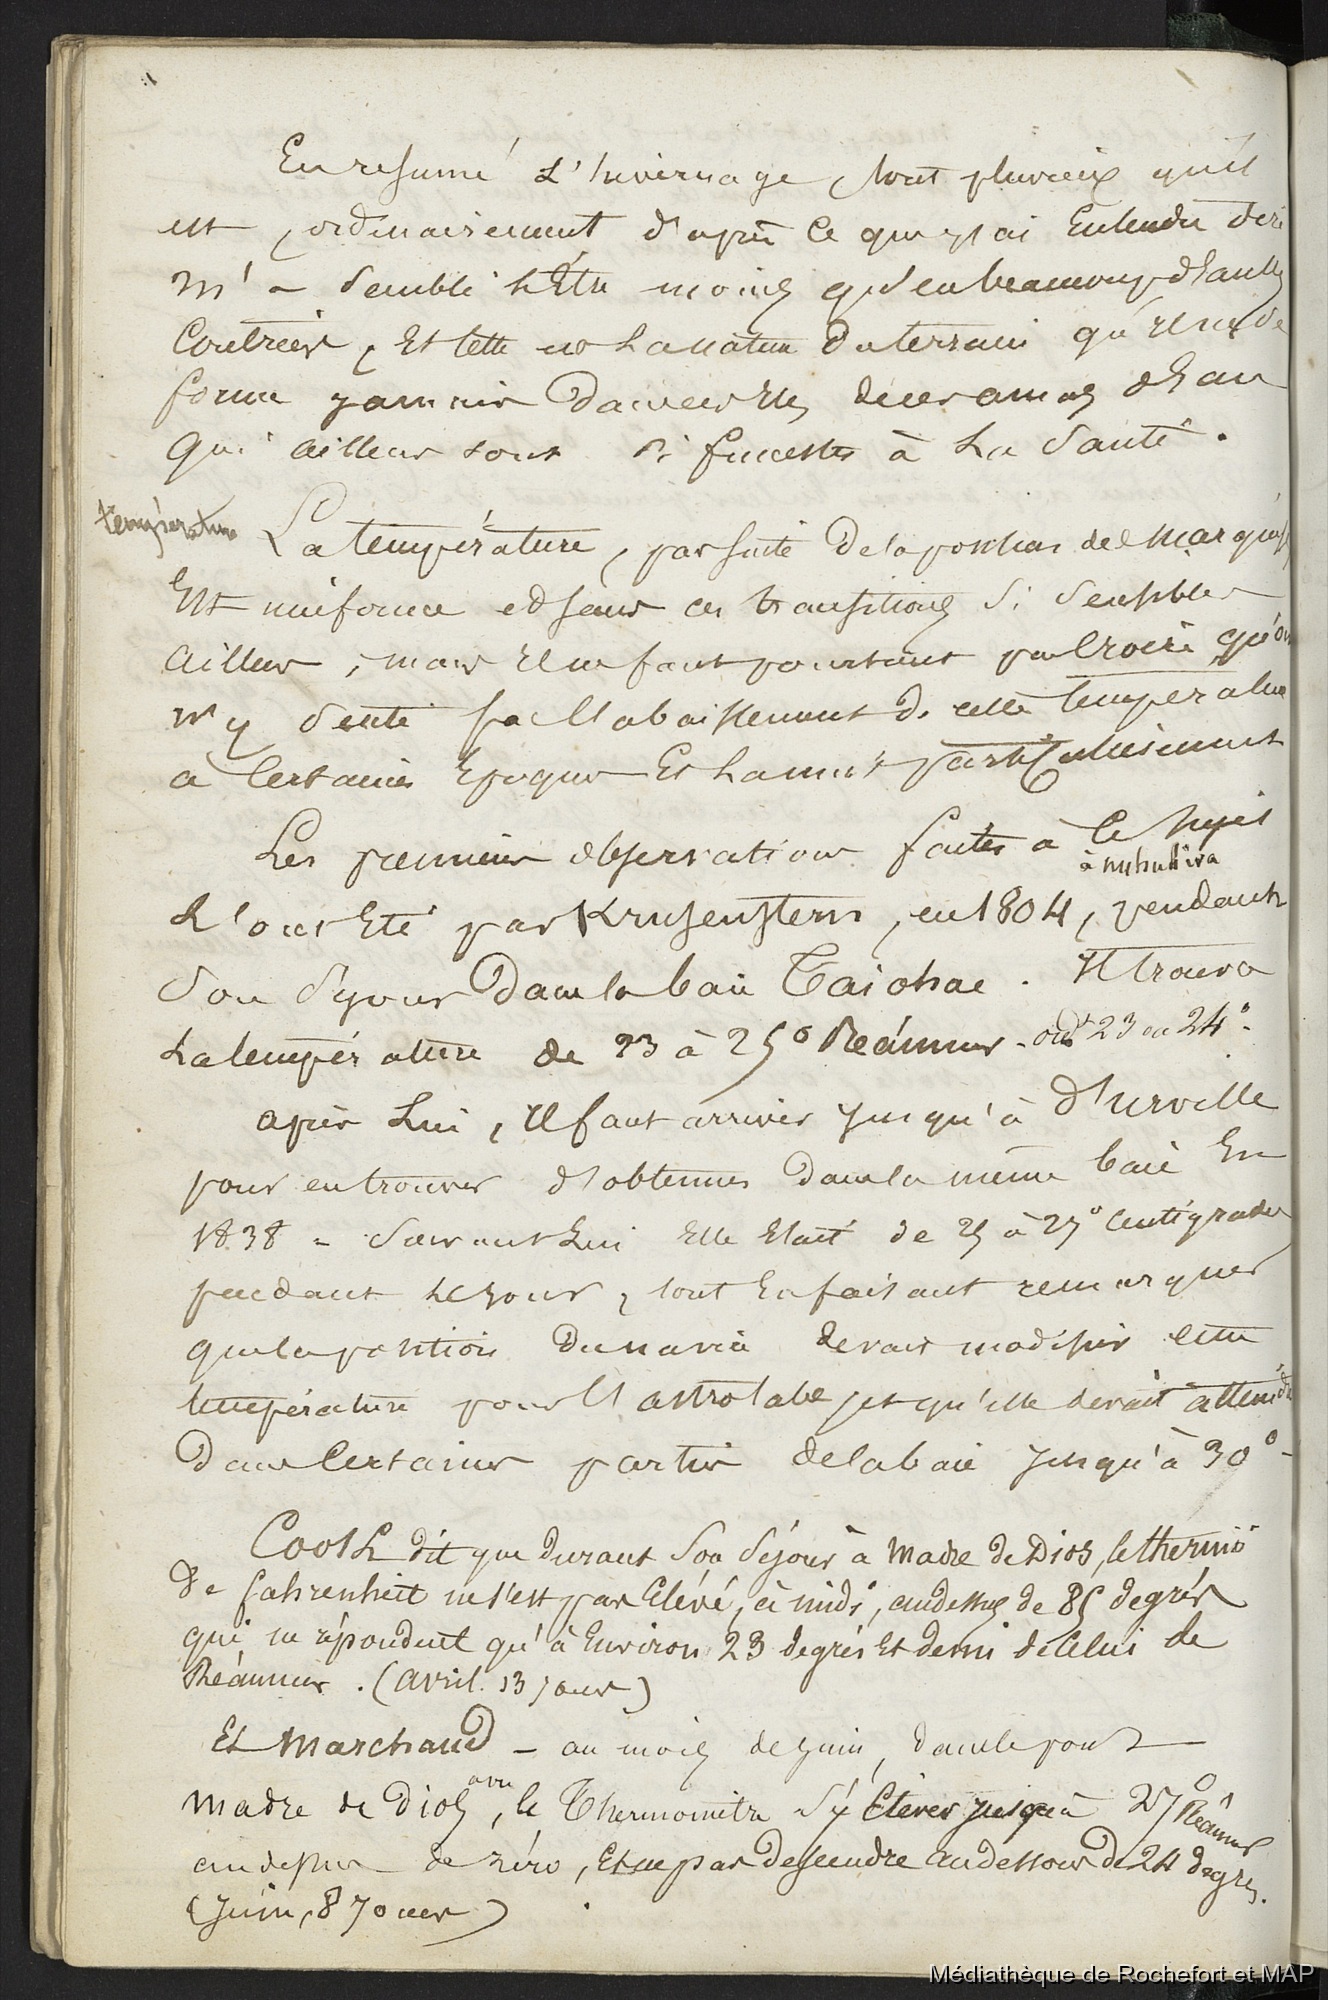 En resumé l'hivernage, tout pluvieux qu'il
est, ordinairement d'après ce que j'ai Entendu dire
m'a semblé l'Etre moins qu'en beaucoup d'autres
Contrées, Et cette a la nature du terrain qu'il ne se
forme jamais dans les iles de ces amas d'eau
qui ailleurs sont si funestes à la santé.
température
La température, par suite de la position des marquises
Est uniforme et sans ces transitions si sensibles
ailleurs, mais il ne faut pourtant pas croire qu'on
n'y sente pas l'abaissement de cette température
a certaines Epoques Et la nuit particulierement
Les premières observations faites à ce sujet
à nukuhiva
l'ont Eté par Krusenstern, en 1804, pendant
son séjour dans la baie Taiohae. Il trouva
la température de 23 à 25° Reáumur - ordt 23 ou 24°.
après lui, il faut arriver jusqu'à d'urville
pour en trouver d'obtenues dans la même baie En
1838 - suivant lui Elle Etait de 25 à 27° centigrades
pendant le jour, tout En faisant remarquer
que la position du navire devait modifier cette
température pour l'astrolabe, et qu'elle devait atteindre
dans certaines parties de la baie jusqu'à 30° -
Cook dit que durant son séjour à madre de Dios, le thermo
de fahrenheit ne s'est pas Elévé, à midi, audessus de 85 degrés
qui ne répondent qu'à Environ 23 degrés Et demi de celui de
Réaumur. (avril. 13 jours)
Et Marchand - au mois de juin, dans le port
madre de Dios, a vu le Thermomètre s'y Elever jusqu'à 27° Réaumur
au dessus de zéro, Et ne pas descendre audessous de 24 degrés.
(Juin, 8 jours)
Médiathèque de Rochefort et MAP